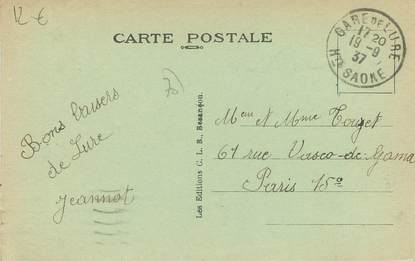 12 €
CARTE POSTALE
GARE DE LURE
17 20
18 -9
37
Hte SAONE
Bons baisers
de Lure
Jeannot
Les Editions C. L. B., Besançon.
Mr et Mme Touzet
61 rue Vasco-de-Gama
Paris 15e